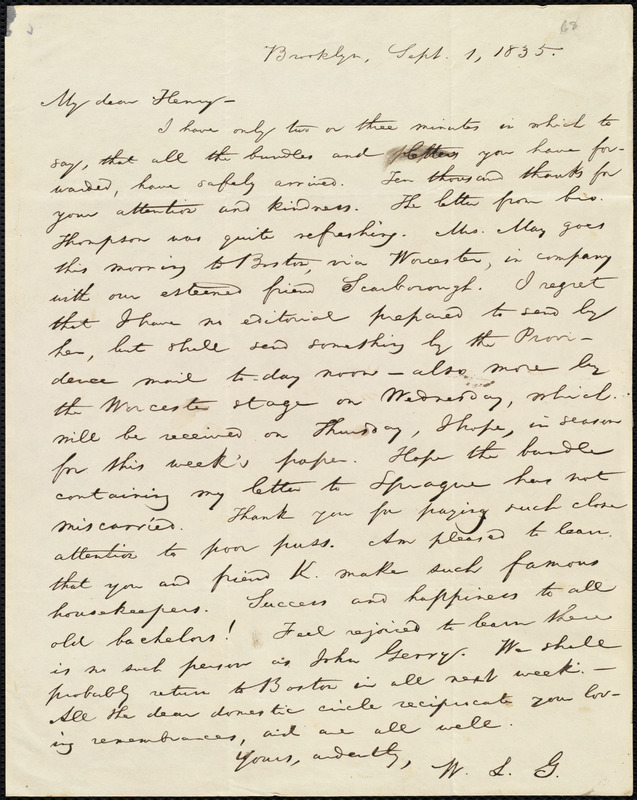 68
Brooklyn, Sept. 1, 1835.
My dear Henry—
I have only two or three minutes in which to
say, that all the bundles and letters you have for-
warded, have safely arrived. Ten thousand thanks for
your attention and kindness. The letter from bro.
Thompson was quite refreshing. Mrs. May goes
this morning to Boston, via Worcester, in company
with our esteemed friend Scarborough. I regret
that I have no editorial prepared to send by
her, but shall send something by the Provi-
dence mail to-day noon—also more by
the Worcester stage on Wednesday, which
will be received on Thursday, I hope, in season
for this week's paper. Hope the bundle
containing my letter to Sprague has not
miscarried. Thank you for paying such close
attention to poor puss. Am pleased to learn
that you and friend K. make such famous
housekeepers. Success and happiness to all
old bachelors! Feel rejoiced to learn there
is no such person as John Gerry. We shall
probably return to Boston in all next week.—
All the dear domestic circle reciprocate your lov-
ing remembrances, and are all well.
Yours, ardently,
W. L. G.